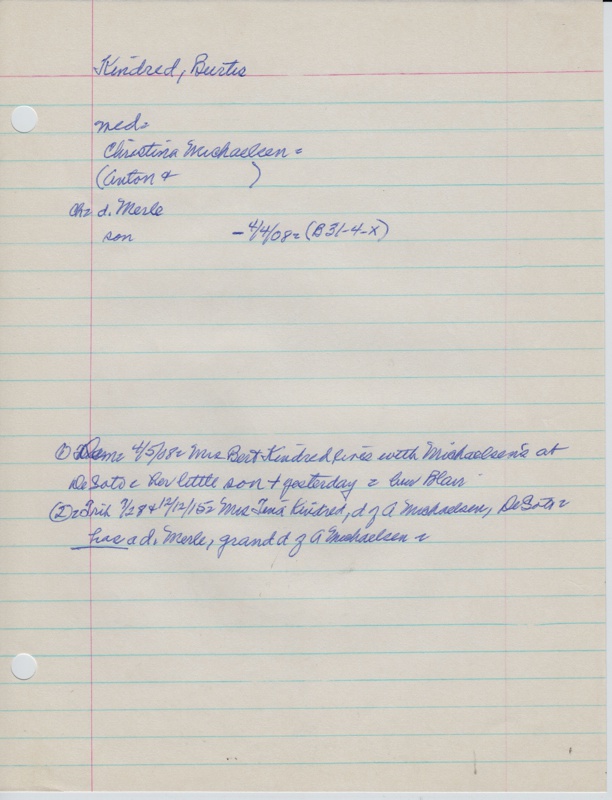 Kindred, Burtis
med=
Christina Michaelsen =
(Anton &          )
Ch= d. Merle
son          - 4/4/08 = (B31-4-X)
① Dem= 4/5/08 = Mrs Bert Kindred lives with Michaelsen's at
DeSoto = her little son + yesterday = bur Blair
② = Trib 7/28 & 12/12/15 = Mrs Tena Kindred, d of A Michaelsen, DeSoto =
has a d. Merle, grand d of A Michaelsen =